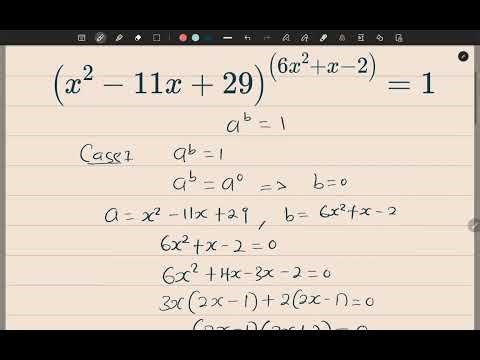 (x² − 11x + 29)^(6x²+x−2) = 1
a^b = 1
Case 1 a^b = 1
a^b = a^0 => b=0
a = x² − 11x + 29, b = 6x² + x − 2
6x² + x − 2 = 0
6x² + 4x − 3x − 2 = 0
3x(2x − 1) + 2(2x − 1) = 0